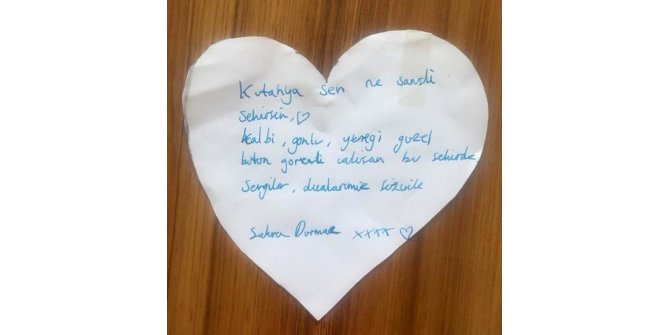 Kutahya sen ne sansli
sehirsin, ♡
kalbi, gonlu, yuregi guzel
butun gorevli calisan bu sehirde
sevgiler, dualarimiz sizinle
Sahra Durmaz xxxx ♡